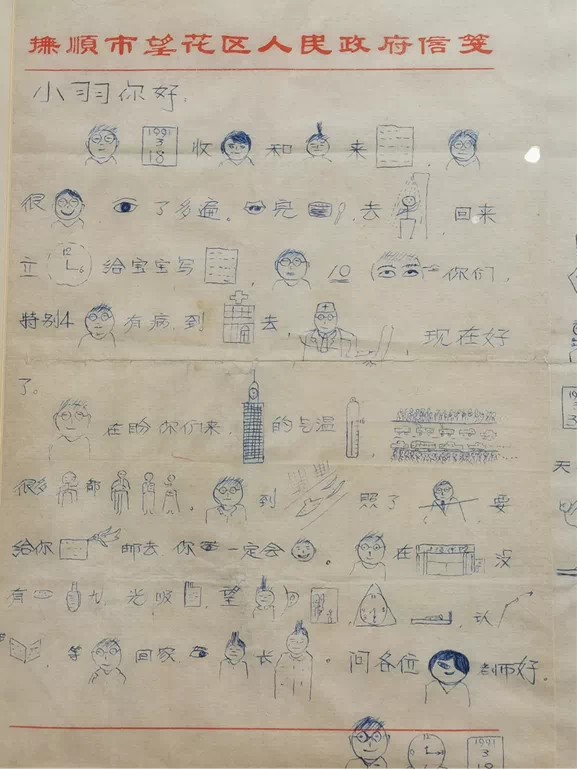 撫順市望花区人民政府信箋
小羽你好:
1991 3 18 收 和 来 .
很 . 了多遍。 亮 , 去 回来
立 12 6 给宝宝写 , 10 你们,
特别 有病到 去, , 现在好
了。
在盼你们来, 的气温 ,
很多 都 , 到 照了 , 要
给你 去 你 一定会 。 在 没
有 光 , 望 , , 认
, 等 回家 长 。 问各位 老师好.
1991
3
18
天